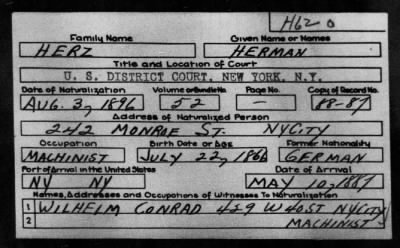 H620
Family Name Given Name or Names
HERZ HERMAN
Title and Location of Court
U. S. DISTRICT COURT, NEW YORK, N.Y.
Date of Naturalization Volume or Bundle No. Page No. Copy of Record No.
AUG. 3, 1896 52 — 88-87
Address of Naturalized Person
242 MONROE ST. NYCITY
Occupation Birth Date or Age Former Nationality
MACHINIST JULY 22, 1866 GERMAN
Port of Arrival in the United States Date of Arrival
NY NY MAY 10, 1887
Names, Addresses and Occupations of Witnesses To Naturalization
1 WILHELM CONRAD 429 W 40 ST NYCITY
2 MACHINIST